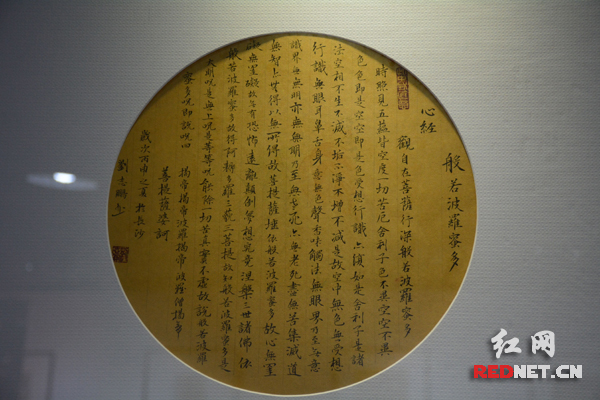 般若波羅蜜多
心经
觀自在菩薩行深般若波羅蜜多
時照見五蘊皆空度一切苦厄舍利子色不異空空不異
色色即是空空即是色受想行識亦復如是舍利子是諸
法空相不生不滅不垢不淨不增不減是故空中無色無受想
行識無眼耳鼻舌身意無色聲香味觸法無眼界乃至無意
識界無無明亦無無明乃至無老死亦無老死盡無苦集滅道
無智亦無得以無所得故菩提薩埵依般若波羅蜜多故心無罣
礙無罣礙故無有恐怖遠離顛倒夢想究竟涅槃三世諸佛依
般若波羅蜜多故得阿耨多羅三藐三菩提故知般若波羅蜜多是
大明咒是無上咒是無等等咒能除一切苦真實不虛故說般若波羅
蜜多咒即說咒曰 揭帝揭帝波羅揭帝波羅僧揭帝
菩提薩婆訶
歲次丙申之夏於長沙
劉志鵬
红网
REDNET.CN